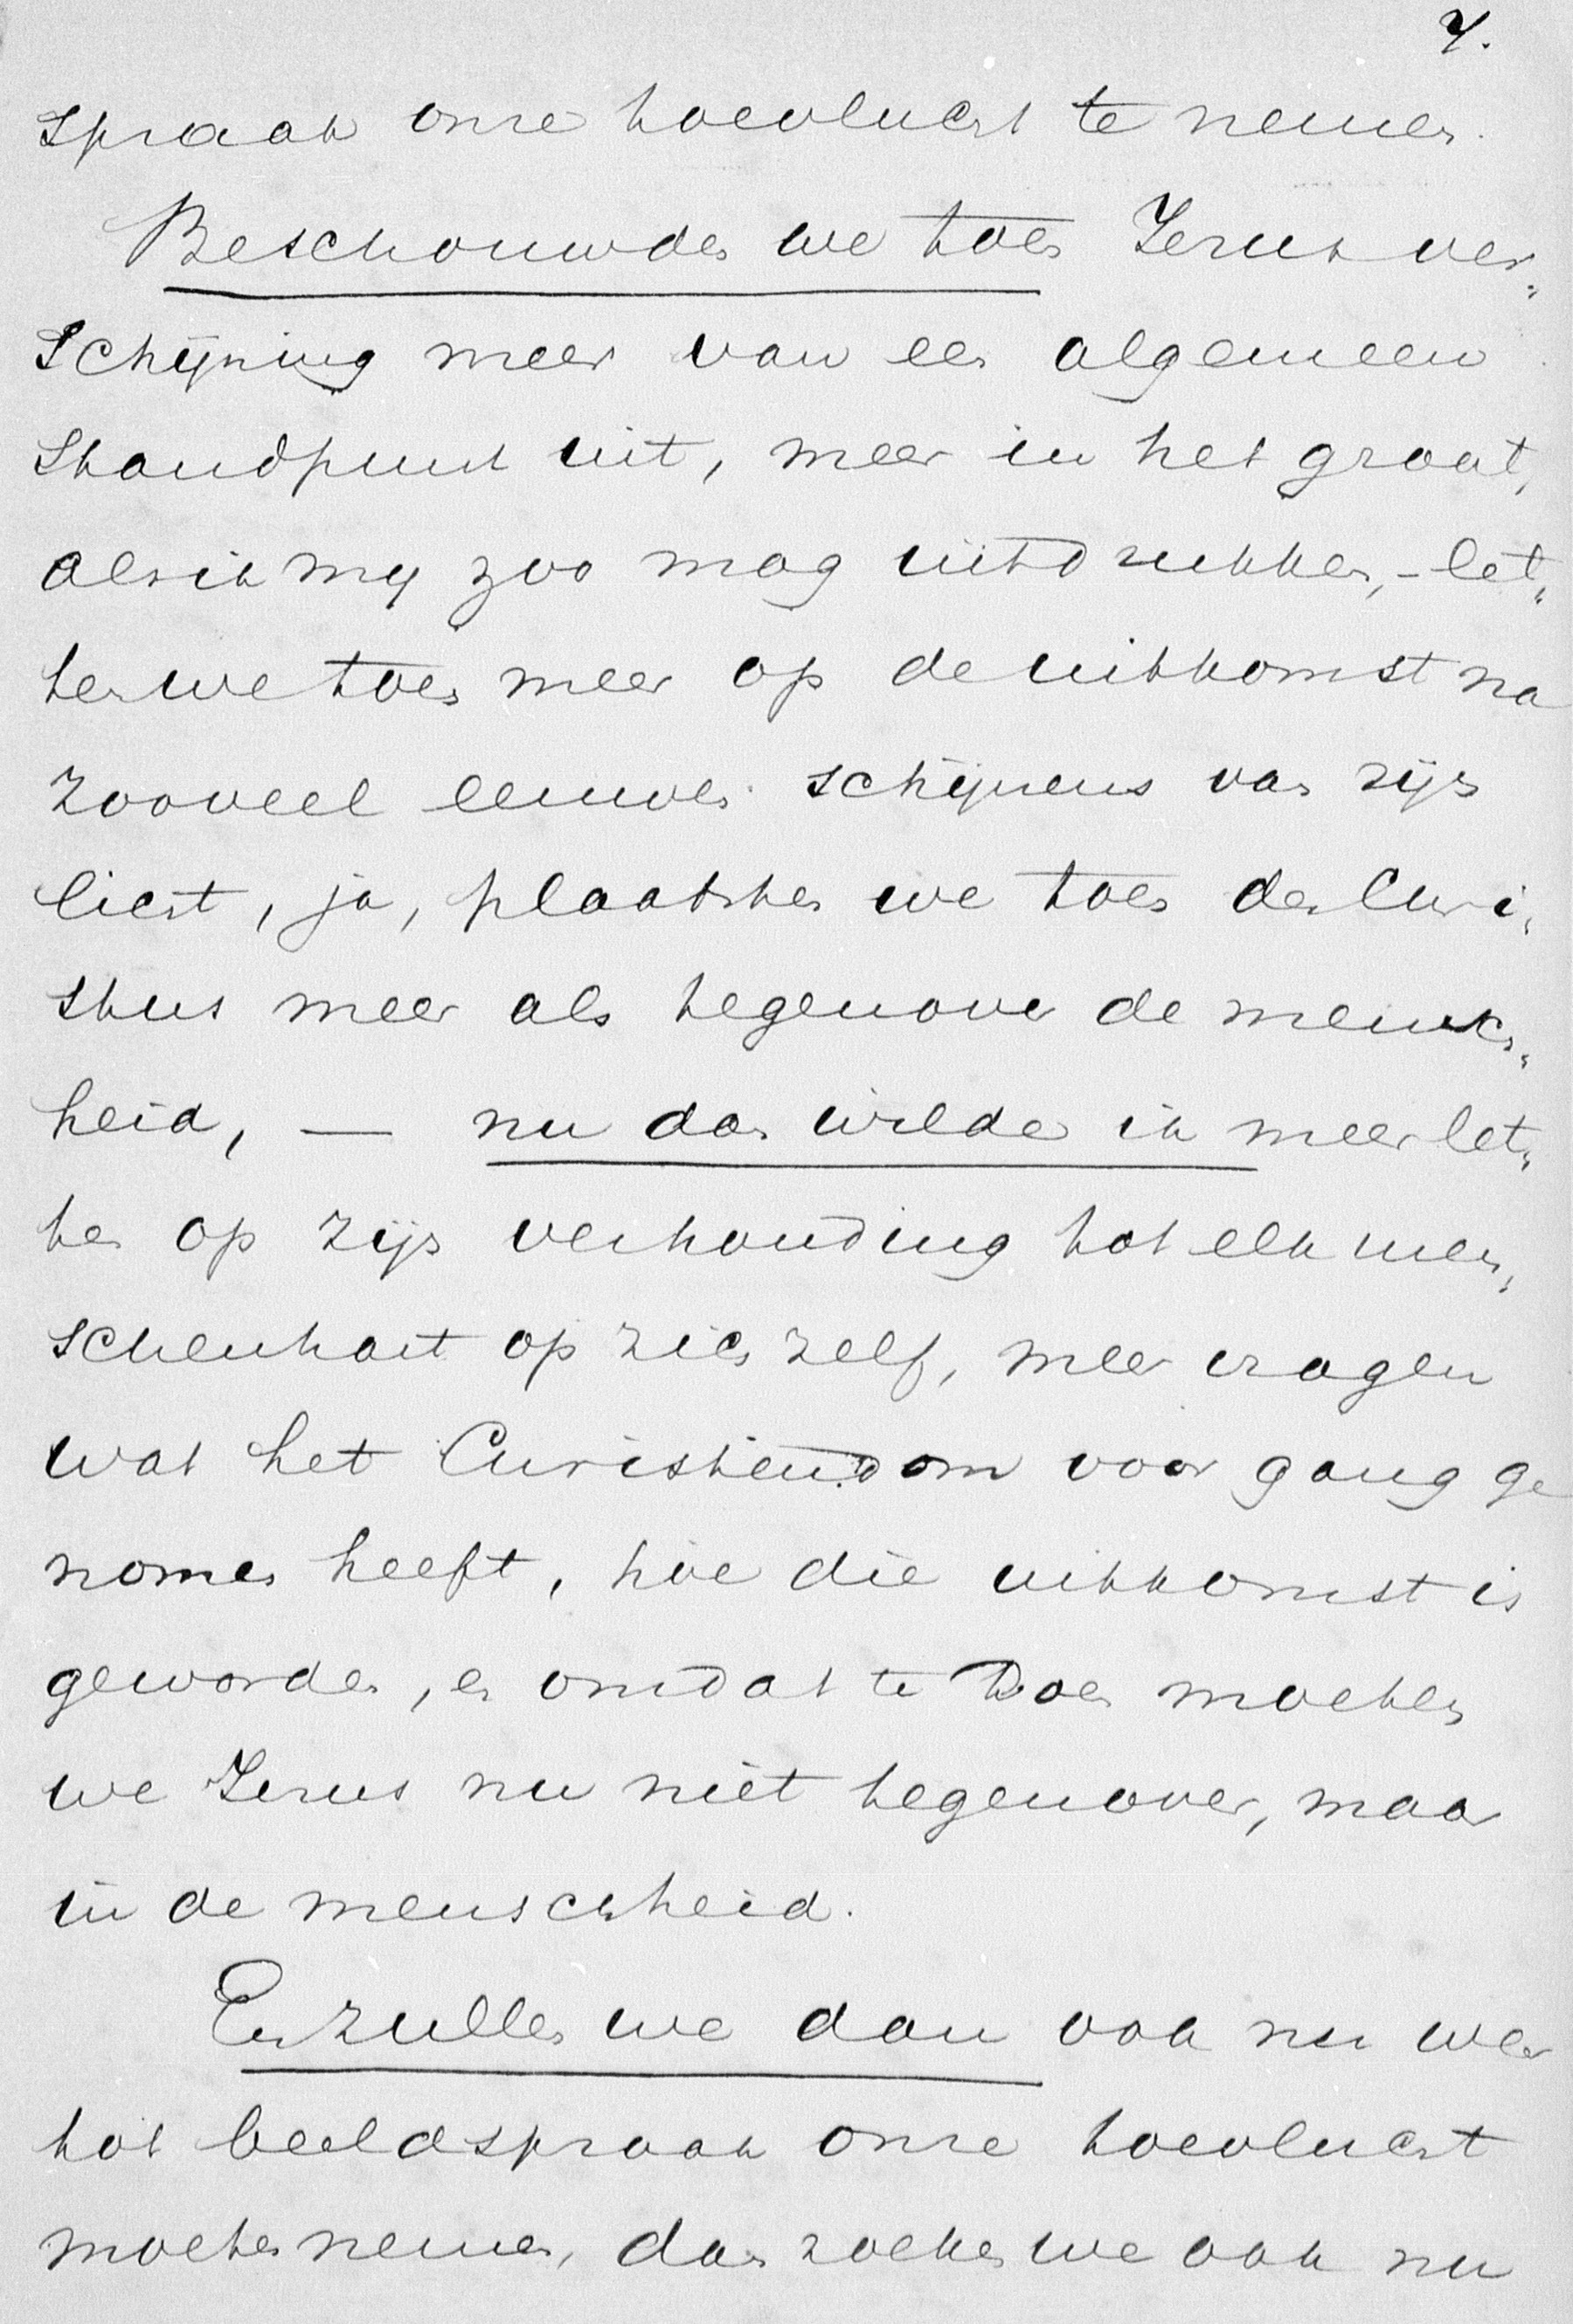 4.
spraak onze toevlucht te nemen.
Beschouwden we toen Jezus ver„
schijning meer van een algemeen
standpunt uit, meer in het groot,
als ik my zoo mag uitdrukken, – let„
ten we toen meer op de uitkomst na
zooveel eeuwen schijnens van zijn
licht, ja, plaatsten we toen den Chri„
stus meer als tegenover de mensch„
heid, — nu dan wilde ik meer let„
ten op zijn verhouding tot elk men„
schenhart op zich zelf, meer vragen
wat het Christendom voor gang ge
nomen heeft, hoe die uitkomst is
geworden, en om dat te doen moeten
we Jezus nu niet tegenover, maar
in de menschheid.
En zullen we dan ook nu weer
tot beeldspraak onze toevlucht
moeten nemen, dan zoeken we ook nu